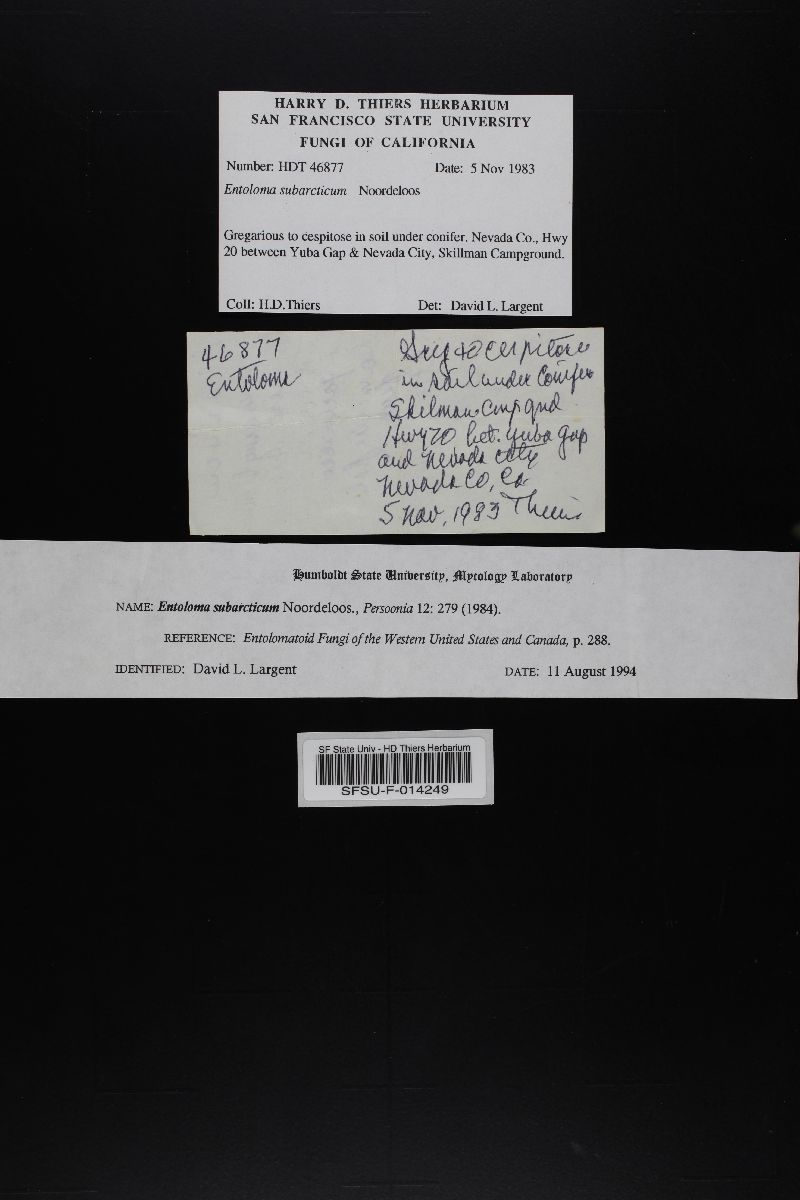 HARRY D. THIERS HERBARIUM
SAN FRANCISCO STATE UNIVERSITY
FUNGI OF CALIFORNIA
Number: HDT 46877 Date: 5 Nov 1983
Entoloma subarcticum Noordeloos
Gregarious to cespitose in soil under conifer. Nevada Co., Hwy
20 between Yuba Gap & Nevada City, Skillman Campground.
Coll: H.D.Thiers Det: David L. Largent
46877
Entoloma
Greg to cespitose
in soil under Conifer
Skilman Cmp gnd
Hwy 20 bet. Yuba Gap
and Nevada City
Nevada Co, Ca
5 Nov, 1983 Thiers
Humboldt State University, Mycology Laboratory
NAME: Entoloma subarcticum Noordeloos., Persoonia 12: 279 (1984).
REFERENCE: Entolomatoid Fungi of the Western United States and Canada, p. 288.
IDENTIFIED: David L. Largent DATE: 11 August 1994
SF State Univ - HD Thiers Herbarium
SFSU-F-014249